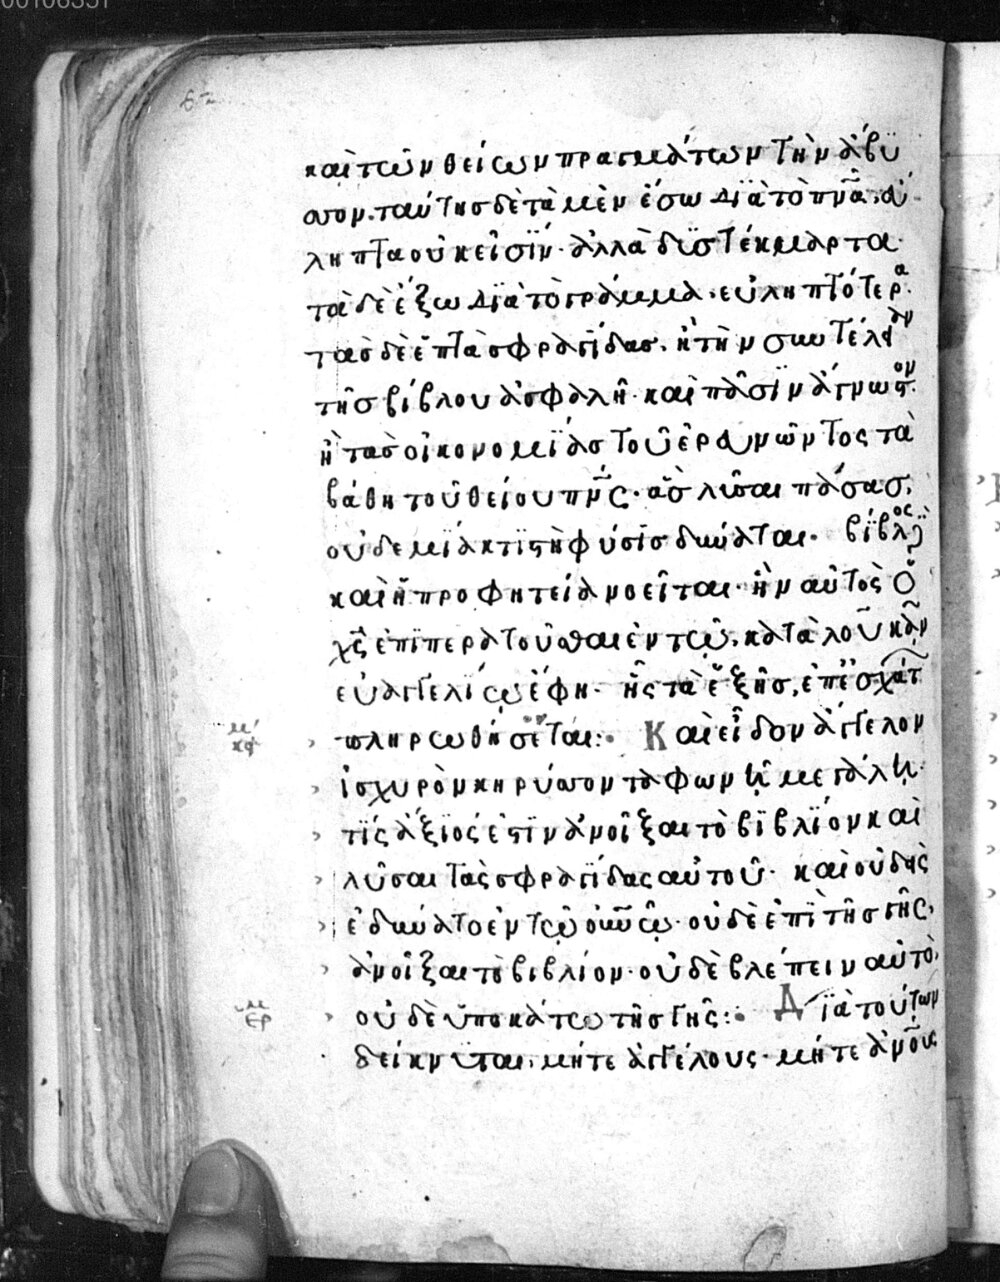 καὶ τῶν θείων πραγμάτων τὴν ἄβυ
σσον. ταύτης δὲ τὰ μὲν ἔσω διὰ τὸ πν̅α̅, ἄ
ληπτα οὐκ εἰσὶν· ἀλλὰ δυστέκμαρτα·
τὰ δὲ ἔξω διὰ τὸ γράμμα, εὐληπτότερα·
τὰς δὲ ἑπτὰ σφραγίδας, ἢ τὴν συντέλειαν
τῆς βίβλου ἀσφαλῆ· καὶ πᾶσιν ἄγνωστον·
ἢ τὰς οἰκονομίας τοῦ ἐραυνῶντος τὰ
βάθη τοῦ θείου πν̅ς̅· ἃς λῦσαι πάσας,
οὐδεμία κτιστὴ φύσις δύναται· βίβλος
καὶ ἡ προφητεία νοεῖται· ἣν αὐτὸς ὁ
χ̅ς̅ ἐπὶ πέρατοῦσθαι ἐν τῷ, κατὰ λουκᾶν
εὐαγγελίῳ ἔφη· ἧς τὰ ἑξῆς, ἐπ' ἐσχάτ
πληρωθήσεται:· Καὶ εἶδον ἄγγελον
ἰσχυρὸν κηρύσσοντα φωνῇ μεγάλῃ·
τίς ἄξιός ἐστιν ἀνοῖξαι τὸ βιβλίον καὶ
λῦσαι τὰς σφραγίδας αὐτοῦ· καὶ οὐδεὶς
ἐδύνατο ἐν τῷ οὐν̅ῷ· οὐδὲ ἐπὶ τῆς γῆς,
ἀνοῖξαι τὸ βιβλίον· οὐδὲ βλέπειν αὐτὸ,
οὐδὲ ὑποκάτω τῆς γῆς:· Διὰ τούτων
δείκνυται, μήτε ἀγγέλους· μήτε ἀν̅ους